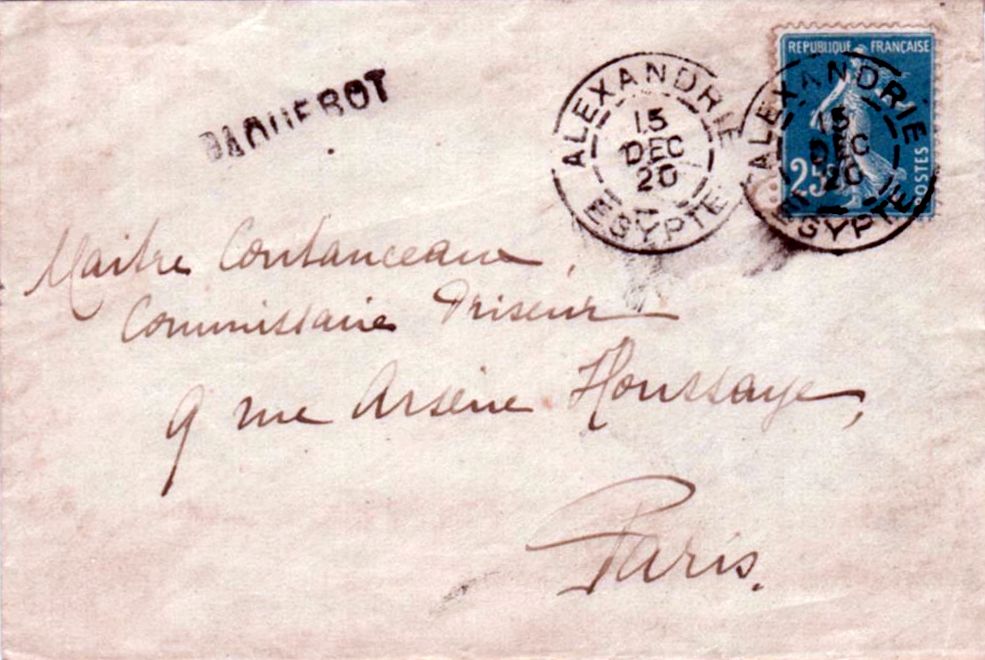 PAQUEBOT
ALEXANDRIE
15
DEC
20
EGYPTE
REPUBLIQUE FRANÇAISE
25c
POSTES
ALEXANDRIE
15
DEC
20
EGYPTE
Maître Coutanceau,
Commissaire Priseur
9 rue Arsène Houssaye,
Paris.